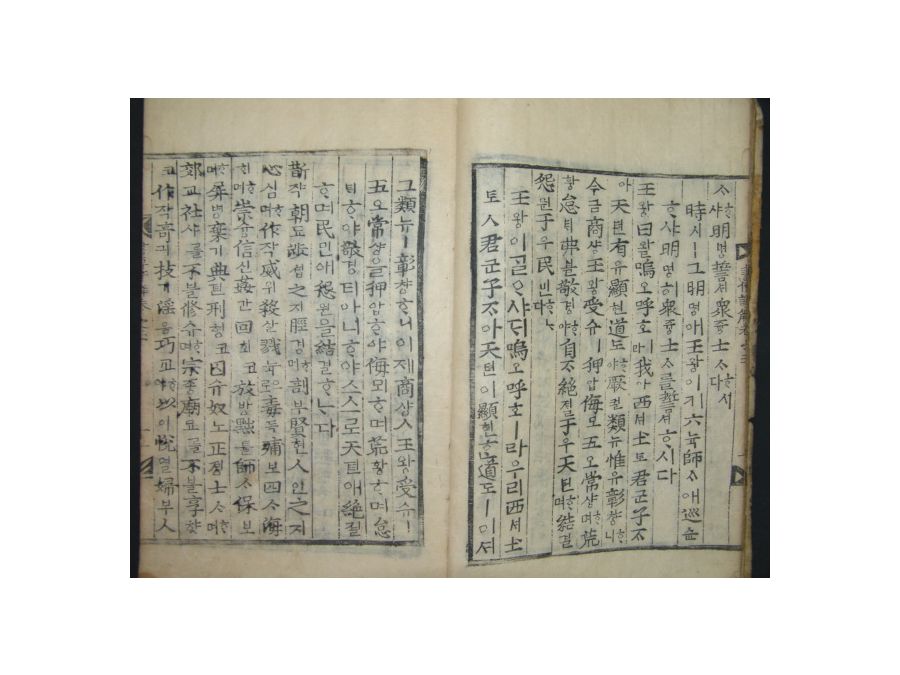 샤明명誓셔衆즁士ᄉᆞᄒᆞ시다
時시ㅣ그明명애王왕이기六늑師ᄉᆞ애巡슌
ᄒᆞ샤明명히衆즁士ᄉᆞ를誓셔ᄒᆞ시다
王왕曰왈嗚오呼호ㅣ라我아西셔土토君군子ᄌᆞ
아天텬有유顯현道도ᄒᆞ야厥궐類뉴惟유彰챵ᄒᆞ니
今금商샹王왕受슈ㅣ狎압侮모五오常샹ᄒᆞ며荒
황怠ᄐᆡ弗블敬경ᄒᆞ야自ᄌᆞ絶졀于우天텬ᄒᆞ며結결
怨원于우民민ᄒᆞᄂᆞ다
王왕이ᄀᆞᆯᄋᆞ샤ᄃᆡ嗚오呼호ㅣ라우리西셔土
토ㅅ君군子ᄌᆞ아天텬이顯현ᄒᆞᆫ道도ㅣ이셔
그類뉴ㅣ彰챵ᄒᆞ니이제商샹ㅅ王왕受슈ㅣ
五오常샹을狎압ᄒᆞ야侮모ᄒᆞ며荒황ᄒᆞ며怠
ᄐᆡᄒᆞ야敬경티아니ᄒᆞ야스스로天텬애絶졀
ᄒᆞ며民민애怨원을結결ᄒᆞᄂᆞ다
斮쟉朝됴涉셥之지脛경ᄒᆞ며剖부賢현人인之지
心심ᄒᆞ며作작威위殺살戮뉵로毒독痡보四ᄉᆞ海
ᄒᆡᄒᆞ며崇슝信신姦간回회ᄒᆞ고放방黜튤師ᄉᆞ保보
ᄒᆞ며屛병棄기典뎐刑형ᄒᆞ고囚슈奴노正졍士ᄉᆞᄒᆞ며
郊교社샤를不블修슈ᄒᆞ며宗종廟묘를不블享향
ᄒᆞ고作작奇긔技기淫음巧교ᄒᆞ야以이悅열婦부人